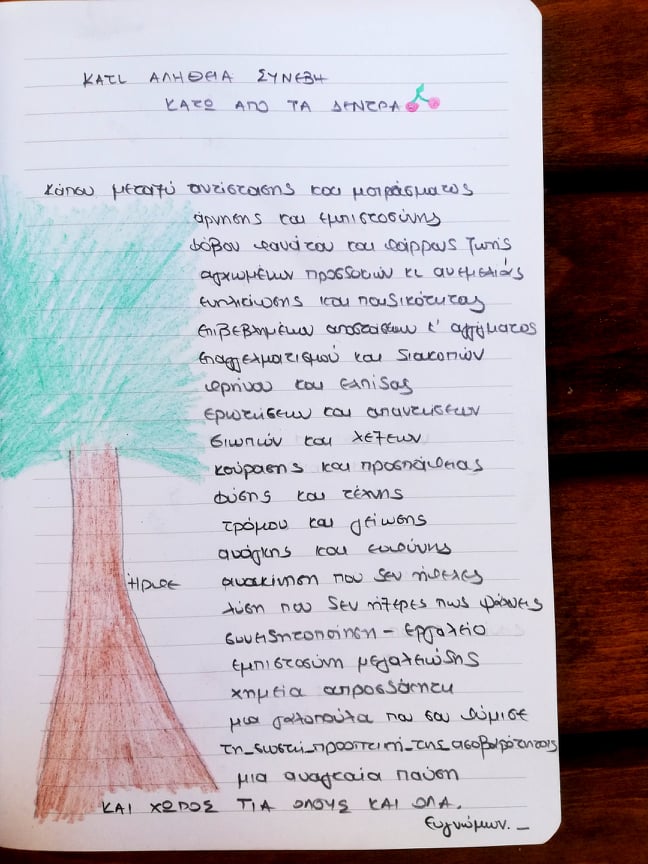 ΚΑΤΙ ΑΛΗΘΕΙΑ ΣΥΝΕΒΗ
ΚΑΤΩ ΑΠΟ ΤΑ ΔΕΝΤΡΑ
κάπου μεταξύ αντίστασης και μοιράσματος
άρνησης και εμπιστοσύνης
φόβου θανάτου και θάρρους ζωής
αγχωμένων προσδοκιών κι ανεμελιάς
ενηλικίωσης και παιδικότητας
επιβεβλημένων αποστάσεων κ' αγγίγματος
επαγγελματισμού και διακοπών
θρήνου και ελπίδας
ερωτήσεων και απαντήσεων
σιωπών και λέξεων
κούρασης και προσπάθειας
φύσης και τέχνης
τρόμου και γείωσης
ανάγκης και ευθύνης
Ήρθε ανακίνηση που δεν ήθελες
λύση που δεν ήξερες πως ψάχνεις
συνειδητοποίηση - εργαλείο
εμπιστοσύνη μεγαλειώδης
χημεία απροσδόκητη
μια γαλοπούλα που σου θύμισε
τη_σωστή_προοπτική_της_σοβαρότητας
μια αναγκαία παύση
ΚΑΙ ΧΩΡΟΣ ΓΙΑ ΟΛΟΥΣ ΚΑΙ ΟΛΑ.
Ευγνώμων. _